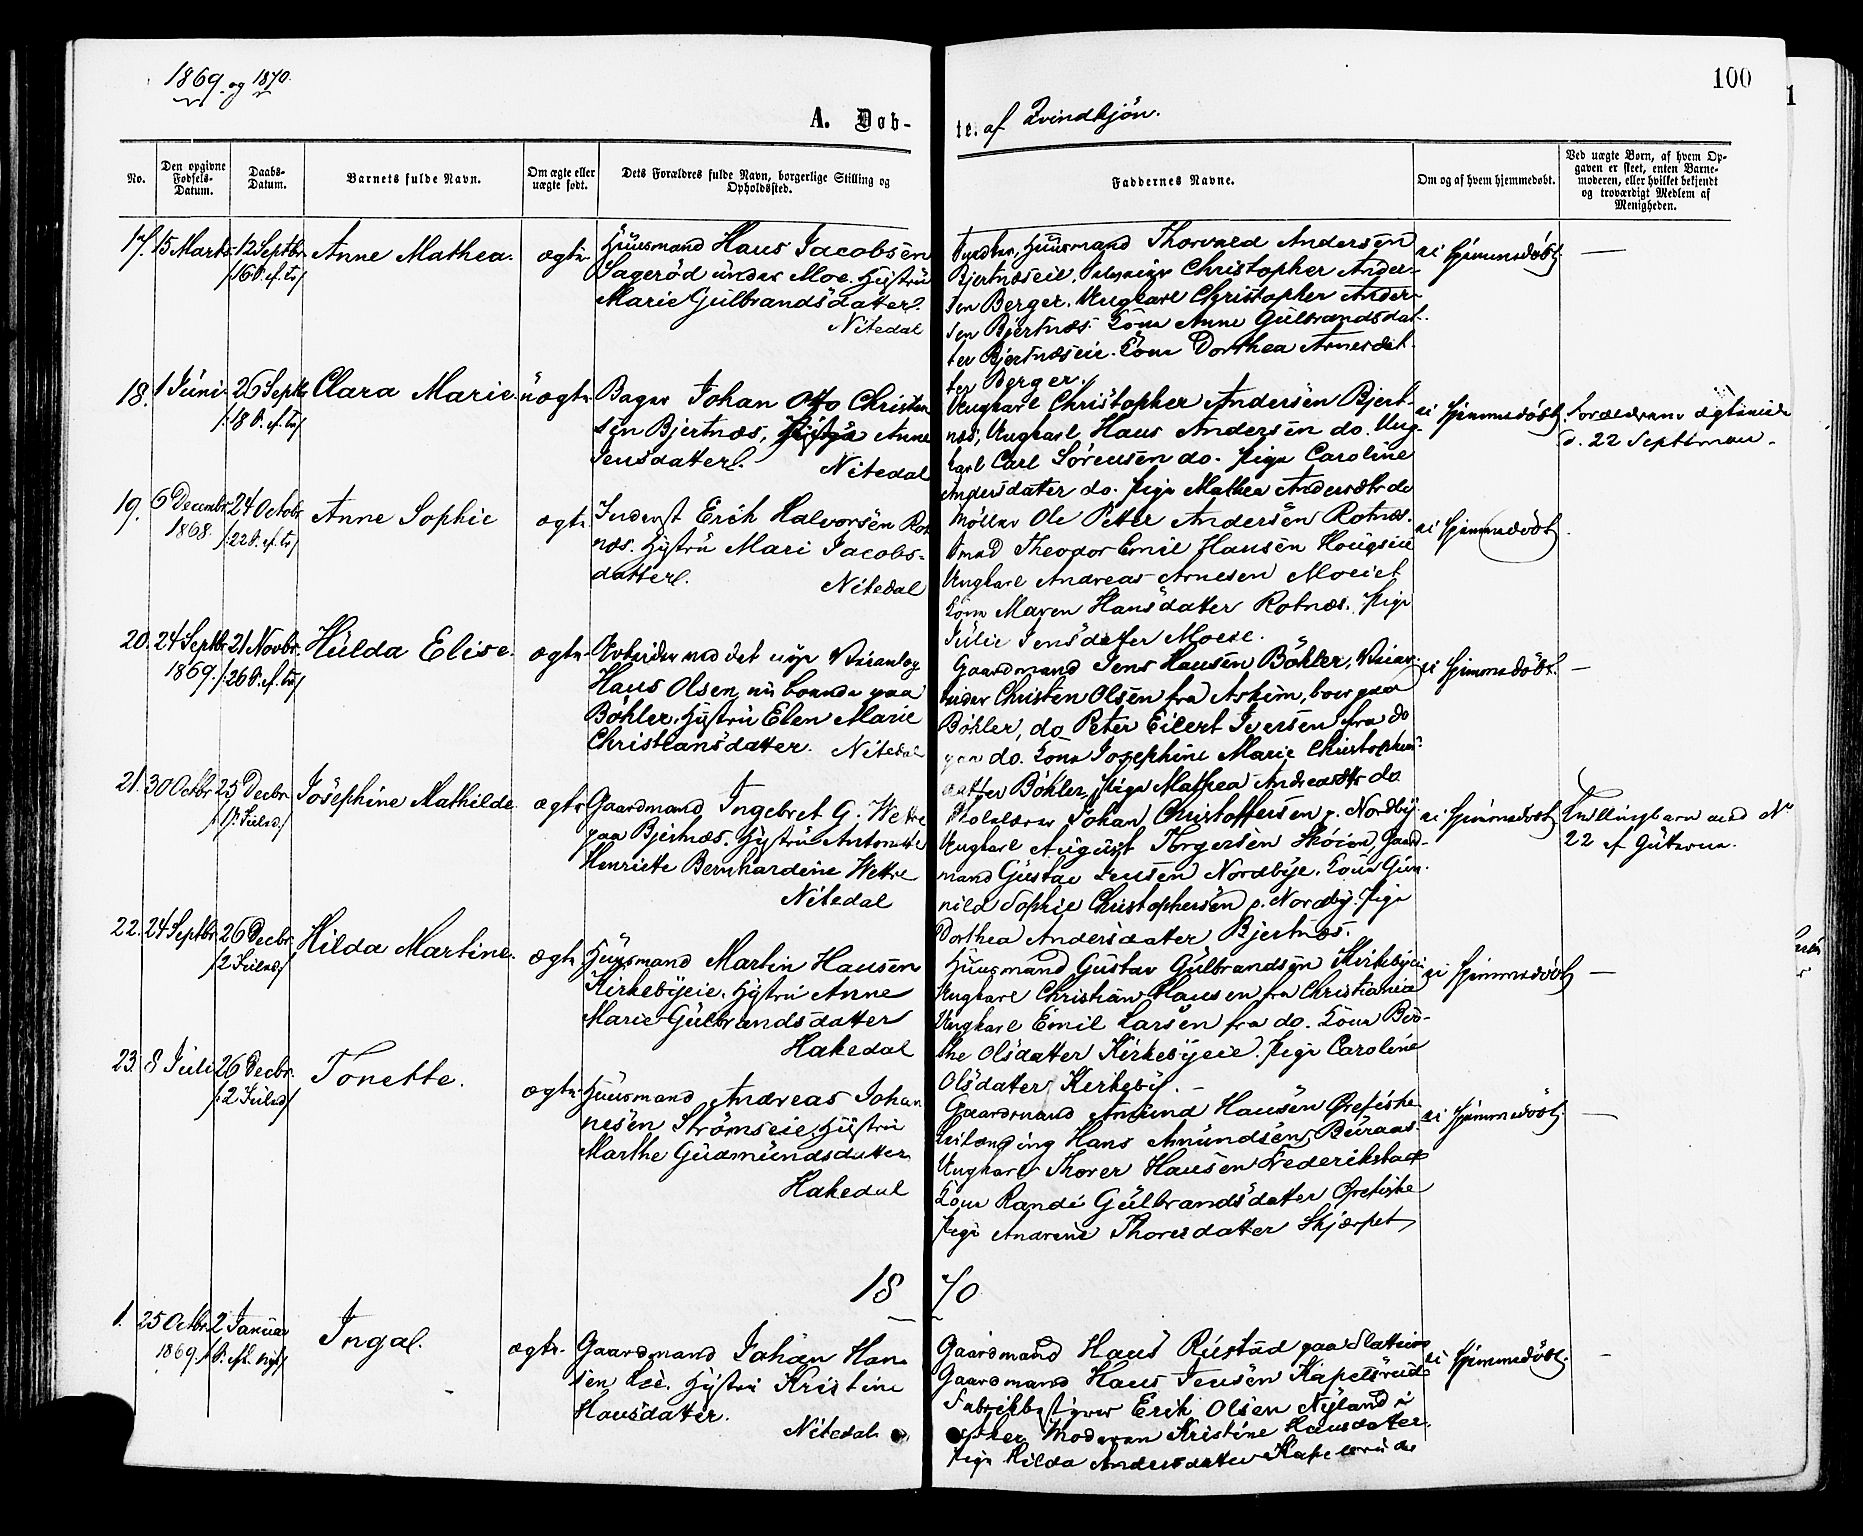 1869. og 1870.
100
A. Døb-
te. af Qvindkjön.
No.
Den opgivne Fødsels-Datum.
Daabs-Datum.
Barnets fulde Navn.
Om ægte eller uægte født.
Dets Forældres fulde Navn, borgerlige Stilling og Opholdssted.
Faddernes Navne.
Om og af hvem hjemmedøbt.
Ved uægte Børn, af hvem Opgaven er skeet, enten Barnemoderen, eller hvilket bekjendt og troværdigt Medlem af Menigheden.
17. 15 Marts 12 Septbr. Anne Mathea. ægte. Huusmand Hans Jacobsen
/:16 S. ef. tr:/ Sagerød under Moe. Hustru
Marie Gulbrandsdatter.
Nitedal
Huusmand Thorvald Andersen
Bjertnæseie. Christopher Ander-
sen Berger. Ungkarl Christopher Ander-
sen Bjertnæs. Kone Anne Gulbrandsdat-
ter Bjertnæseie. Kone Dorthea Arnesdat-
ter Berger.
ei hjemmedøbt. —
18. 1 Juni 26 Septbr Clara Marie uægte. Bager Johan Otto Christen
/:18 S. ef. tr:/ sen Bjertnæs, Anne
Jensdatter.
Nitedal
Ungkarl Christopher Andersen Bjert-
næs, Ungkarl Hans Andersen do. Ung-
karl Carl Sörensen do. Pige Caroline
Andersdatter do. Pige Mathea Andersdtr do
ei hjemmedøbt. Forældrene ægteviede
d. 22 September.
19. 6 Decembr 24 Octobr. Anne Sophie ægte Inderst Erik Halvorsen Rot
1868. /:22 S. ef. tr:/ næs. Hustru Mari Jacobs-
datter.
Nitedal
Möller Ole Peter Andersen Rotnæs.
Smed Theodor Emil Hansen Hougseie
Ungkarl Andreas Arnesen Moeiet
Kone Maren Hansdatter Rotnæs. Pige
Julie Jensdatter Moeie.
ei hjemmedøbt.
20. 24 Septbr. 21 Novbr. Hulda Elise. ægte. Arbeider ved det nye Veianlæg
1869. /:26 S. ef. tr:/ Hans Olsen, nu boende paa
Böhler. Hustru Elen Marie
Christiansdatter. Nitedal
Gaardmand Jens Hansen Böhler, Veiar-
beider Christen Olsen fra Askim, boer paa
Böhler, do Peter Eilert Iversen fra do
paa do. Kone Josephine Marie Christophers-
datter Böhler, Pige Mathea Andreasdtr do
ei hjemmedøbt. —
21. 30 Octbr 25 Decbr. Josephine Mathilde. ægte Gaardmand Ingebret G. Wette
/:1ste Juled:/ paa Bjertnæs. Hustru Antonette
Henriette Bernhardine Wette
Nitedal
Skolelærer Johan Christoffersen p. Nordby
Ungkarl August Torgersen Skøien, Gaard-
mand Gustav Jensen Nordbye. Kone Gun-
nild Sophie Christophersen p. Nordby. Pige
Dorthea Andersdatter Bjertnæs.
ei hjemmedøbt. Tvillingbarn med No
22 af Gutterne.
22. 24 Septbr. 26 Decbr. Hilda Martine. ægte Huusmand Martin Hansen
/:2 Juled:/ Kirkebyeie. Hustru Anne
Marie Gulbrandsdatter
Hakedal
Huusmand Gustav Gulbrandsen Kirkebyeie
Ungkarl Christian Hansen fra Christiania
Ungkarl Emil Larsen fra do. Kone Ber-
the Olsdatter Kirkebyeie. Pige Caroline
Olsdatter Kirkeby. —
ei hjemmedøbt —
23. 8 Juli 26 Decbr. Tonette. ægte Huusmand Andreas Johan
/:2 Juled:/ nesen Strömseie. Hustru
Marthe Gudmundsdatter
Hakedal
Gaardmand Amund Hansen Ørfiske
Hans Amundsen Buraas.
Ungkarl Thorer Hansen Frederikstad
Kone Randi Gulbrandsdatter Ørfiske
Pige Andrine Thoresdatter Skjærpet
ei hjemmedøbt. —
18 70
1. 25 Octbr. 2 Januar Ingal. ægte. Gaardmand Johan Han-
1869. /:S. eft. nyt:/ sen Lee. Hustru Kristine
Hansdatter.
Nitedal
Gaardmand Hans Rustad paa Slattum
Gaardmand Hans Jensen Kapelsrud
Fabrikbestyrer Erik Olsen Nyland i
Moderen Kristine Hansdatter.
Pige Hilda Andersdatter Kapelsrud
ei hjemmedøbt. —